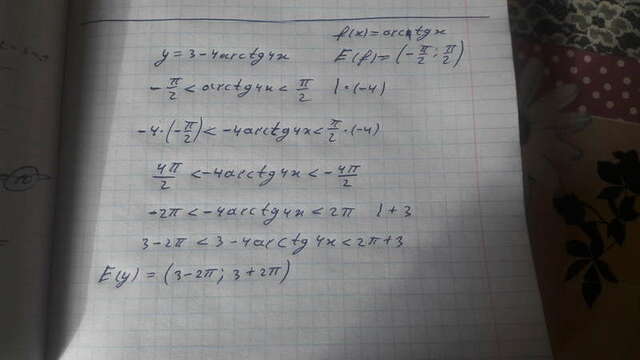 f(x)=arcctgx
y = 3-4arctg4x E(f)=(-π/2; π/2)
-π/2 < arctg4x < π/2 |·(-4)
-4·(-π/2) < -4arctg4x < π/2·(-4)
4π/2 < -4arctg4x < -4π/2
-2π < -4arctg4x < 2π |+3
3-2π < 3-4arctg4x < 2π+3
E(y) = (3-2π; 3+2π)